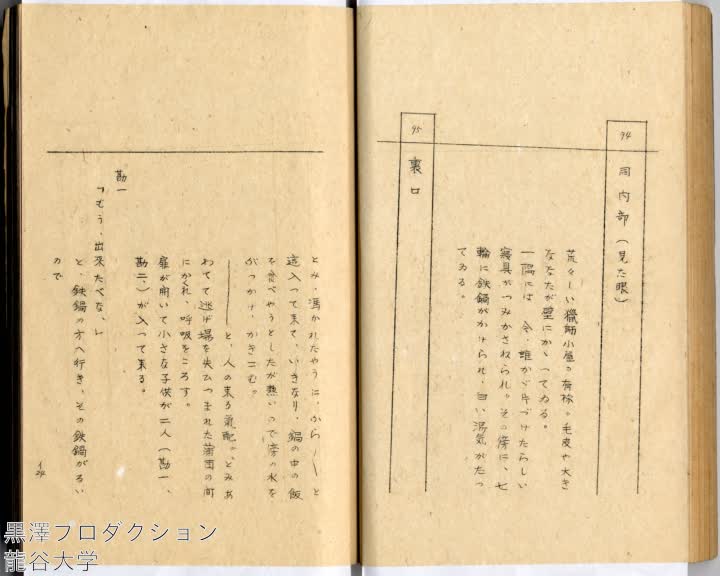 94
同内部（見た眼）
荒々しい猟師小屋の有様。毛皮や大き
ななたが壁にかゝってゐる。
一隅には 今、誰かゞ片づけたらしい
寝具がつみかさねられ。その傍に、七
輪に鉄鍋がかけられ、白い湯気がたっ
てゐる。
95
裏口
とみ、憑かれたやうに、ふら――と
這入って来て、いきなり、鍋の中の飯
を食べやうとしたが熱いので傍の水を
ぶっかけ、かきこむ。
――と、人の来る気配。、とみあ
わてて逃げ場を失ひつまれた蒲団の間
にかくれ、呼吸をころす。
扉が開いて小さな子供が二人（勘一、
勘二、）が入って来る。
勘一
「もう、出来たべな、」
と、鉄鍋の方へ行き、その鉄鍋がるい
ので
黒澤プロダクション
龍谷大学